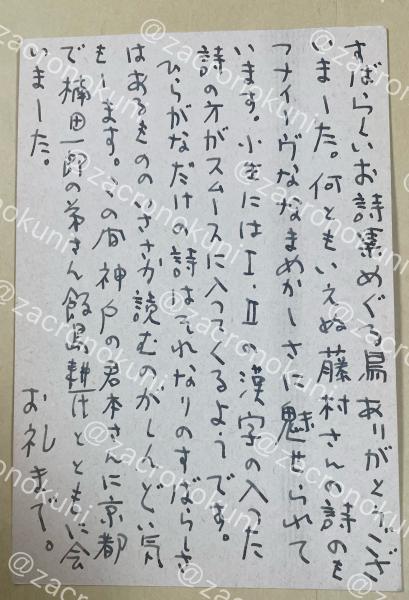 すばらしいお詩集めぐる鳥ありがとうござ
いました。何ともいえぬ藤村さんの詩のも
つナイーヴななまめかしさに魅せられて
います。小生にはⅠ・Ⅱの漢字の入った
詩の方がスムースに入ってくるようです。
ひらがなだけの詩はそれなりのすばらしさ
はあるもののいささか読むのがしんどい気
もします。この間神戸の君本さんに京都
で楠田一郎の弟さん飯島耕一とともに会
いました。 お礼まで。
@zacronokuni